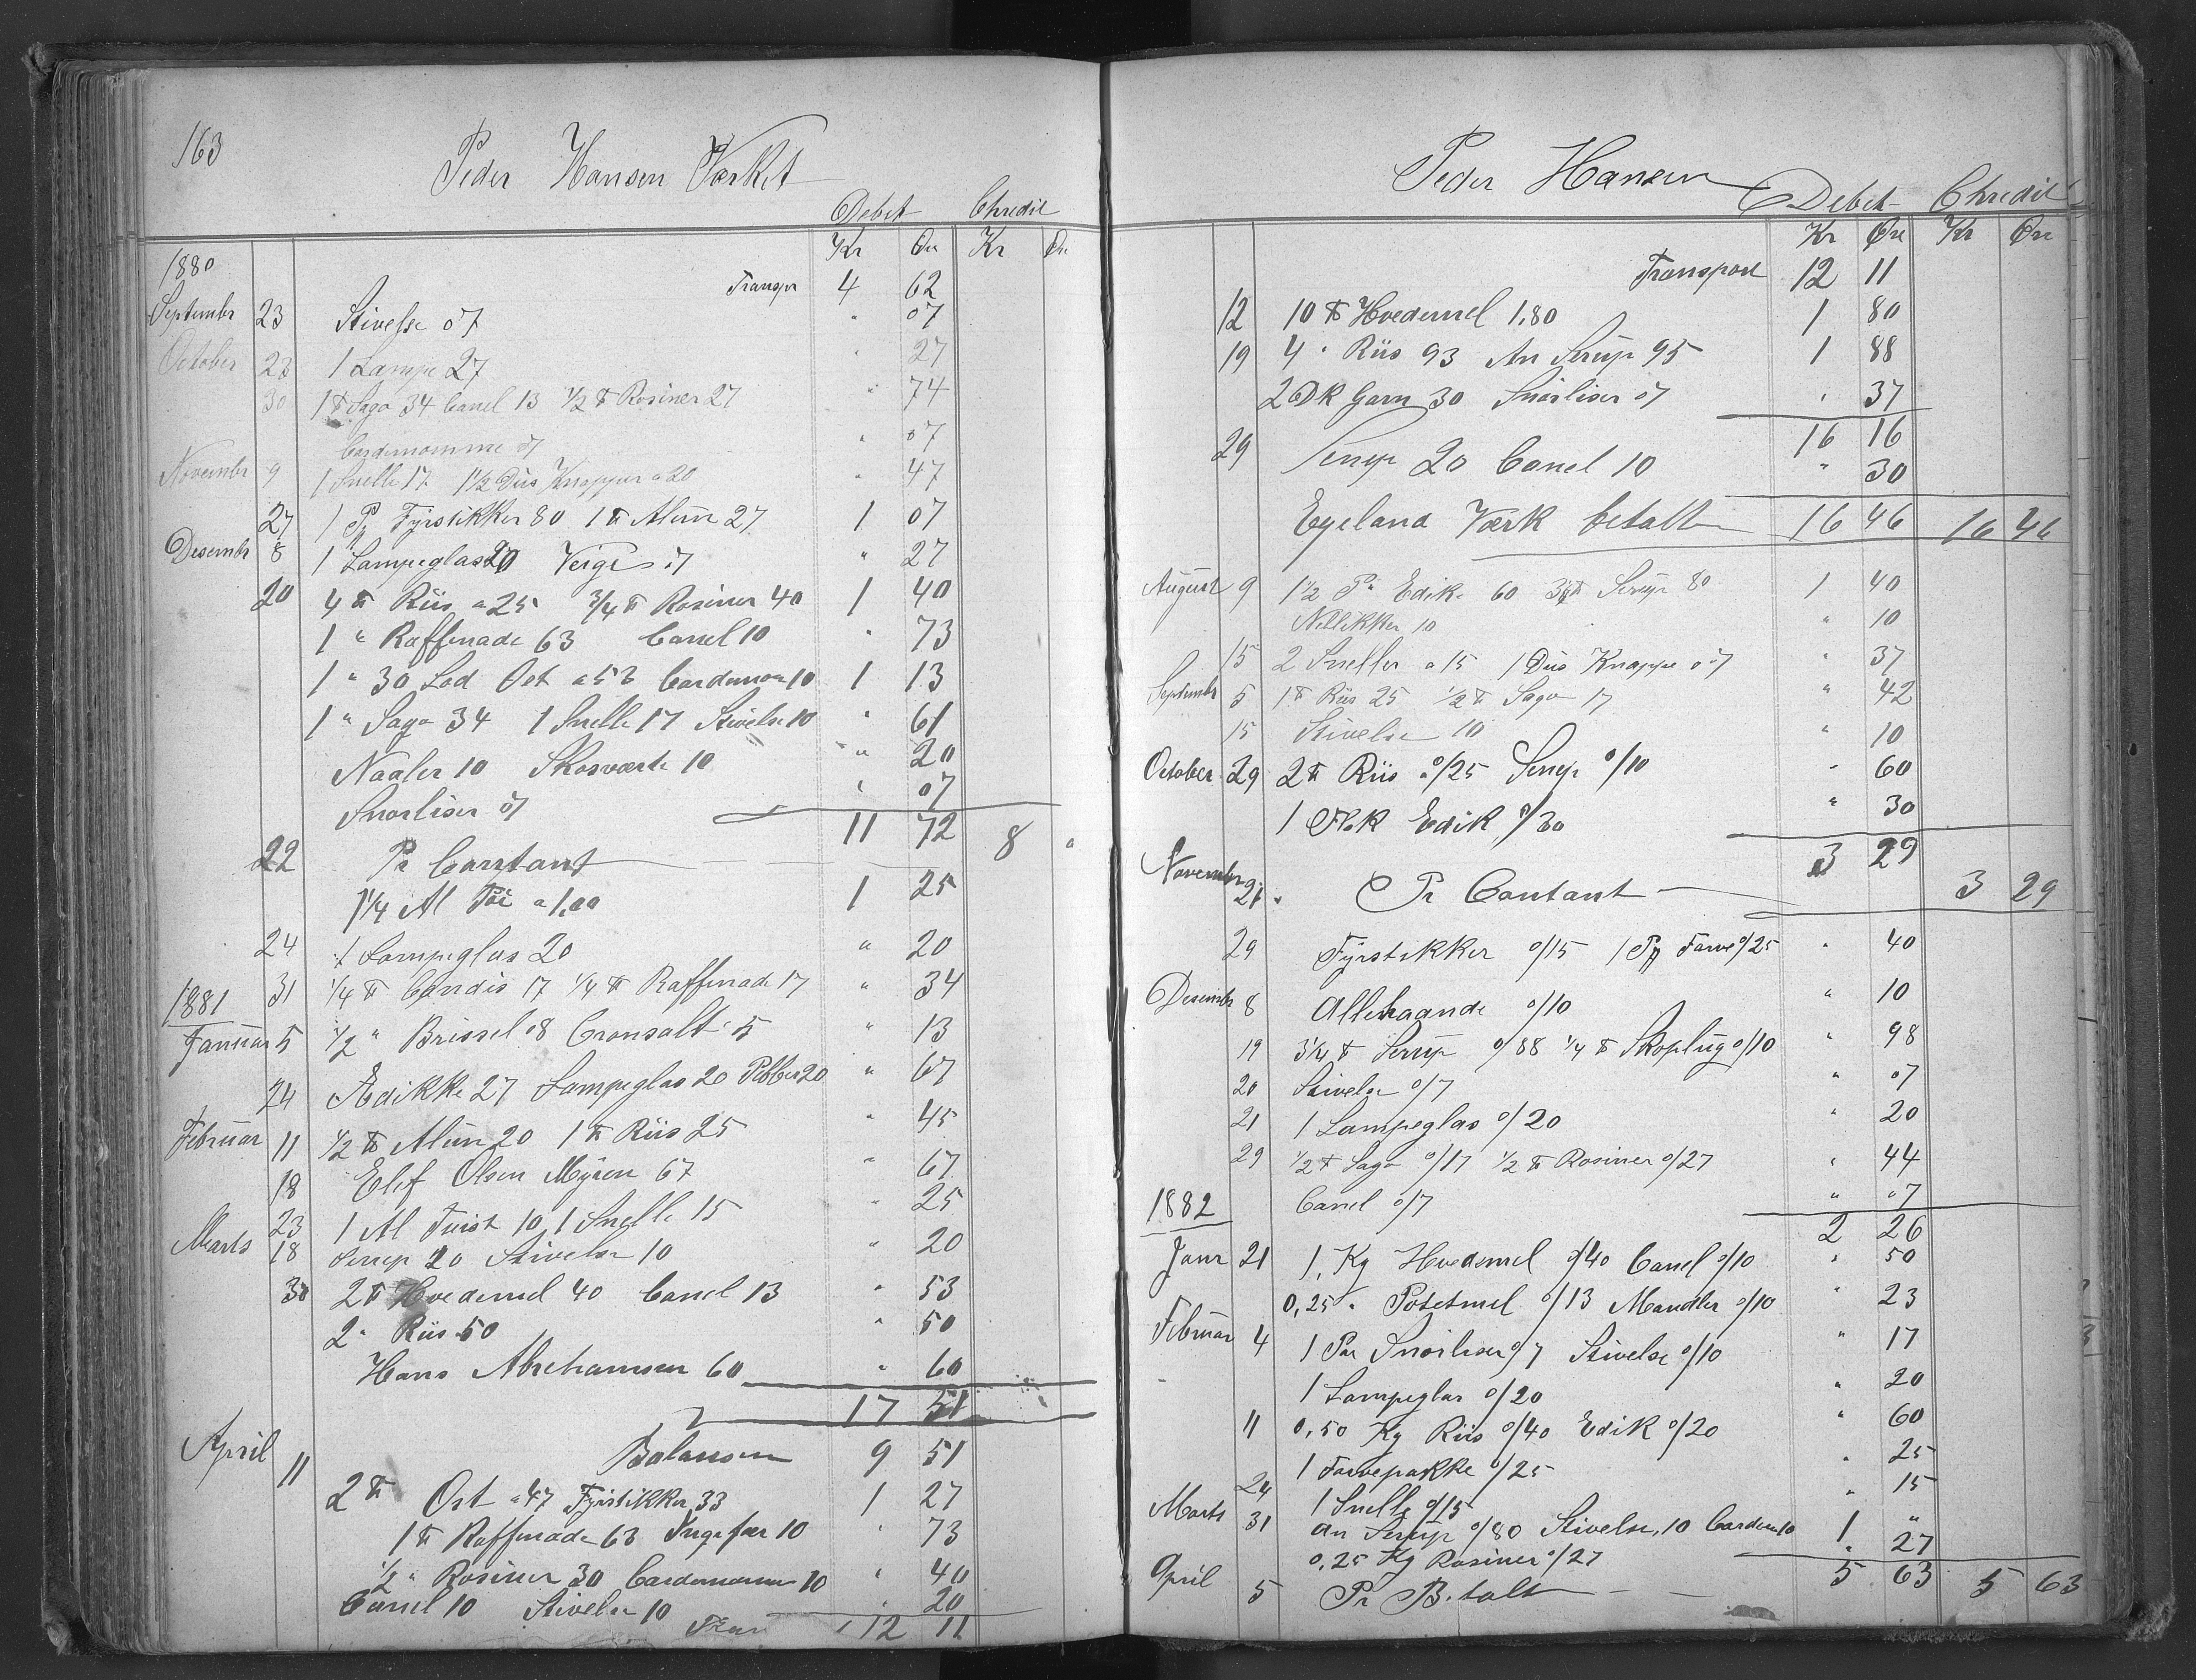 163
Peder Hansen Værket
Debet Chredit
Kr Øre Kr Øre
1880
Transpr 4 62
Septembr 23 Stivelse 07 " 07
October 23 1 Lampe 27 " 27
30 1 ℔ Sago 34 Canel 13 1/2 ℔ Rosiner 27 " 74
Cardemomme 07 " 07
Novembr 9 1 Snelle 17 1 1/2 Dus Knapper a 20 " 47
27 1 Pk Fyrstikker 80 1 ℔ Alun 27 1 07
Desembr 8 1 Lampeglas 20 Veige 07 " 27
20 4 ℔ Riis a 25 3/4 ℔ Rosiner 40 1 40
1 " Raffenade 63 Canel 10 " 73
1 " 30 Lod Ost a 53 Cardemom 10 1 13
1 " Sago 34 1 Snelle 17 Stivelse 10 " 61
Naaler 10 Skosværte 10 " 20
Snorliser 07 " 07
11 72
22 Pr Contant 8 "
1 1/4 Al Töi a 1,00 1 25
24 1 Lampeglas 20 " 20
31 1/4 ℔ Candis 17 1/4 ℔ Raffenade 17 " 34
1881
Januar 5 1/2 " Brissel 08 Cronsalt 05 " 13
24 Ædikke 27 Lampeglas 20 Pebber 20 " 67
Februar 11 1/2 ℔ Alun 20 1 ℔ Riis 25 " 45
18 Elef Olsen Myren 67 " 67
23 1 Al Tuist 10 1 Snelle 15 " 25
Marts 18 Serup 20 Stivelse 10 " 20
30 2 ℔ Hvedemel 40 Canel 13 " 53
2 " Riis 50 " 50
Hans Abrehamsen 60 " 60
17 51
Balansen 9 51
April 11 2 ℔ Ost a 47 Fyrstikker 33 1 27
1 ℔ Raffenade 63 Ingefær 10 " 73
1/2 " Rosiner 30 Cardemomm 10 " 40
Canel 10 Stivelse 10 " 20
Tran 12 11
Peder Hansen
Debet Chredit
Kr Øre Kr Øre
Transport 12 11
12 10 ℔ Hvedemel 1,80 1 80
19 4 " Riis 93 An Serup 95 1 88
2 Dk Garn 30 Snorliser 07 " 37
16 16
29 Serup 20 Canel 10 " 30
Egeland Værk betalt 16 46 16 46
August 9 1 1/2 Pæ Edik 60 3 1/4 ℔ Serup 80 1 40
Nellikker 10 " 10
15 2 Sneller a 15 1 Dus Knappe 07 " 37
Septembr 5 1 ℔ Riis 25 1/2 ℔ Sago 17 " 42
15 Stivelse 10 " 10
October 29 2 ℔ Riis a 0/25 Serup 0/10 " 60
1 Flsk Edik 0/30 " 30
3 29
Novembr 21 Pr Contant 3 29
29 Fyrstikker 0/15 1 Pk Farve 0/25 " 40
Desembr 8 Allehaande 0/10 " 10
19 3 1/4 ℔ Serup 0/88 1/4 ℔ Skoplug 0/10 " 98
20 Stivelse 0/7 " 07
21 1 Lampeglas 0/20 " 20
29 1/2 ℔ Sago 0/17 1/2 ℔ Rosiner 0/27 " 44
Canel 0/7 " 07
1882
2 26
Janr 21 1, Kg Hvedemel 0/40 Canel 0/10 " 50
0,25 " Potetmel 0/13 Mandler 0/10 " 23
Februar 4 1 Par Snorliser 0/7 Stivelse 0/10 " 17
1 Lampeglas 0/20 " 20
11 0,50 Kg Riis 0/40 Edik 0/20 " 60
1 Farvepakke 0/25 " 25
24 1 Snelle 0/15 " 15
Marts 31 an Serup 0/80 Stivelse, 10 Cardem 10 1 "
0,25 Kg Rosiner 0/27 " 27
5 63
April 5 Pr Betalt 5 63